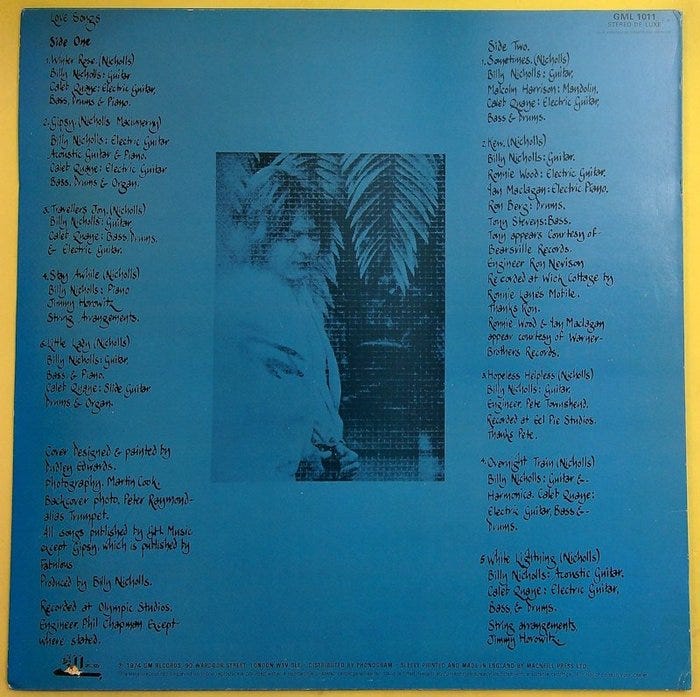 Love Songs
Side One
1. Winter Rose. (Nicholls)
Billy Nicholls: Guitar
Calet Quaye: Electric Guitar,
Bass, Drums & Piano.
2. Gipsy. (Nicholls Macumerry)
Billy Nicholls: Electric Guitar
Acoustic Guitar & Piano.
Calet Quaye: Electric Guitar
Bass, Drums & Organ.
3. Travellers Joy. (Nicholls)
Billy Nicholls: Guitar
Calet Quaye: Bass, Drums.
& Electric Guitar.
4. Stay Awhile (Nicholls)
Billy Nicholls: Piano
Jimmy Horowitz
String Arrangements.
Little Lady (Nicholls)
Billy Nicholls: Guitar,
Bass & Piano.
Calet Quaye: Slide Guitar
Drums & Organ.
Cover Designed & painted by
Dudley Edwards.
Photography. Martin Cook.
Backcover photo. Peter Raymond-
alias Trumpet.
All songs published by G.H. Music
except Gipsy, which is published by
Fabulous
Produced by Billy Nicholls.
Recorded at Olympic Studios.
Engineer Phil Chapman Except
where stated.
GML 1011
STEREO DE-LUXE
Side Two.
1. Sometimes. (Nicholls)
Billy Nicholls: Guitar,
Malcolm Harrison: Mandolin,
Calet Quaye: Electric Guitar,
Bass & Drums.
2. Kew. (Nicholls)
Billy Nicholls: Guitar.
Ronnie Wood: Electric Guitar,
Yan Maclagan: Electric Piano.
Ron Berg: Drums.
Tony Stevens: Bass.
Tony appears Courtesy of-
Bearsville Records.
Engineer Ron Nevison
Recorded at Wick Cottage by
Ronnie Lanes Motile.
Thanks Ron.
Ronnie Wood & Yan Maclagan
appear courtesy of Warner-
Brothers Records.
3. Hopeless Helpless (Nicholls)
Billy Nicholls: Guitar,
Engineer, Pete Townshend.
Recorded at Eel Pie Studios.
Thanks Pete.
4. Overnight Train (Nicholls)
Billy Nicholls: Guitar &-
Harmonica. Calet Quaye:
Electric Guitar, Bass &-
Drums.
5. White Lightning (Nicholls)
Billy Nicholls: Acoustic Guitar.
Calet Quaye: Electric Guitar,
Bass, & Drums.
String arrangements,
Jimmy Horowitz
1974 GM RECORDS, 90 WARDOUR STREET, LONDON W1V 3LE · DISTRIBUTED BY PHONOGRAM · SLEEVE PRINTED AND MADE IN ENGLAND BY MACNEILL PRESS LTD.